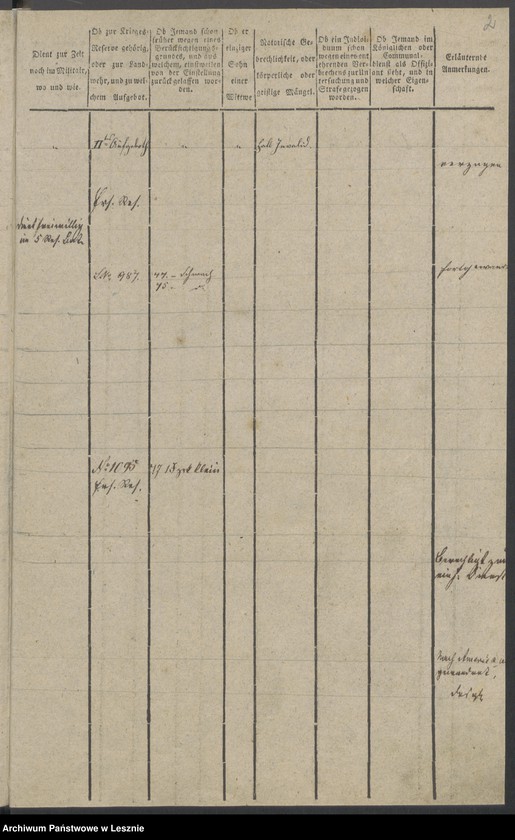 2
Dient zur Zeit
noch im Militair,
wo und wie.
Ob zur Krieges-
Reserve gehörig,
oder zur Land-
wehr, und zu wel-
chem Aufgebot.
Ob Jemand schon
früher wegen eines
Berücksichtigungs-
grundes, und aus
welchem, einstweilen
von der Einstellung
zurückgelassen wor-
den.
Ob er
einziger
Sohn
einer
Wittwe
Notorische Ge-
brechlichkeit, oder
körperliche oder
geistige Mängel.
Ob ein Indivi-
duum schon
wegen eines ent-
ehrenden Ver-
brechens zur Un-
tersuchung und
Strafe gezogen
worden.
Ob Jemand im
Königlichen oder
Communal-
dienst als Offizi-
ant steht, und in
welcher Eigen-
schaft.
Erläuternde
Anmerkungen.
" II " " halb Invalid
verzogen
Ers. Res.
dient freiwillig
im 5 Res.
No. 987. 44. – schwach
45. –
No 1095 klein
Ers. Res.
Berechtigt
einj. Dienst
nach Amerika